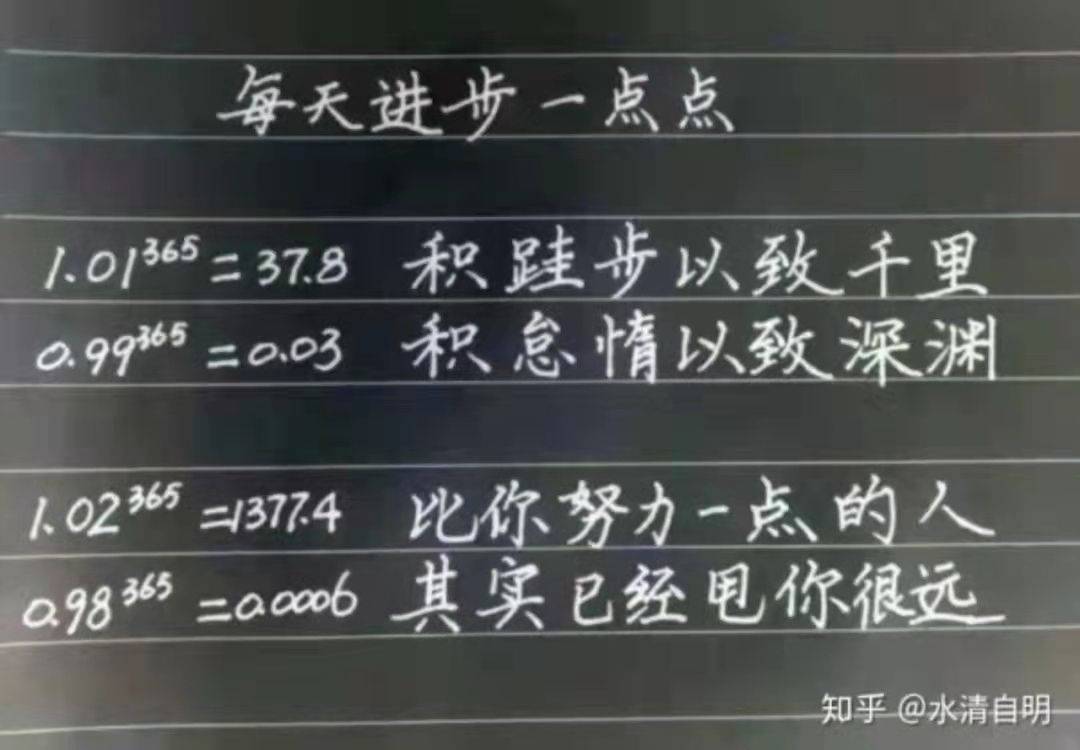 每天进步一点点
1.01³⁶⁵=37.8 积跬步以致千里
0.99³⁶⁵=0.03 积怠惰以致深渊
1.02³⁶⁵=1377.4 比你努力一点的人
0.98³⁶⁵=0.0006 其实已经甩你很远
知乎 @水清自明